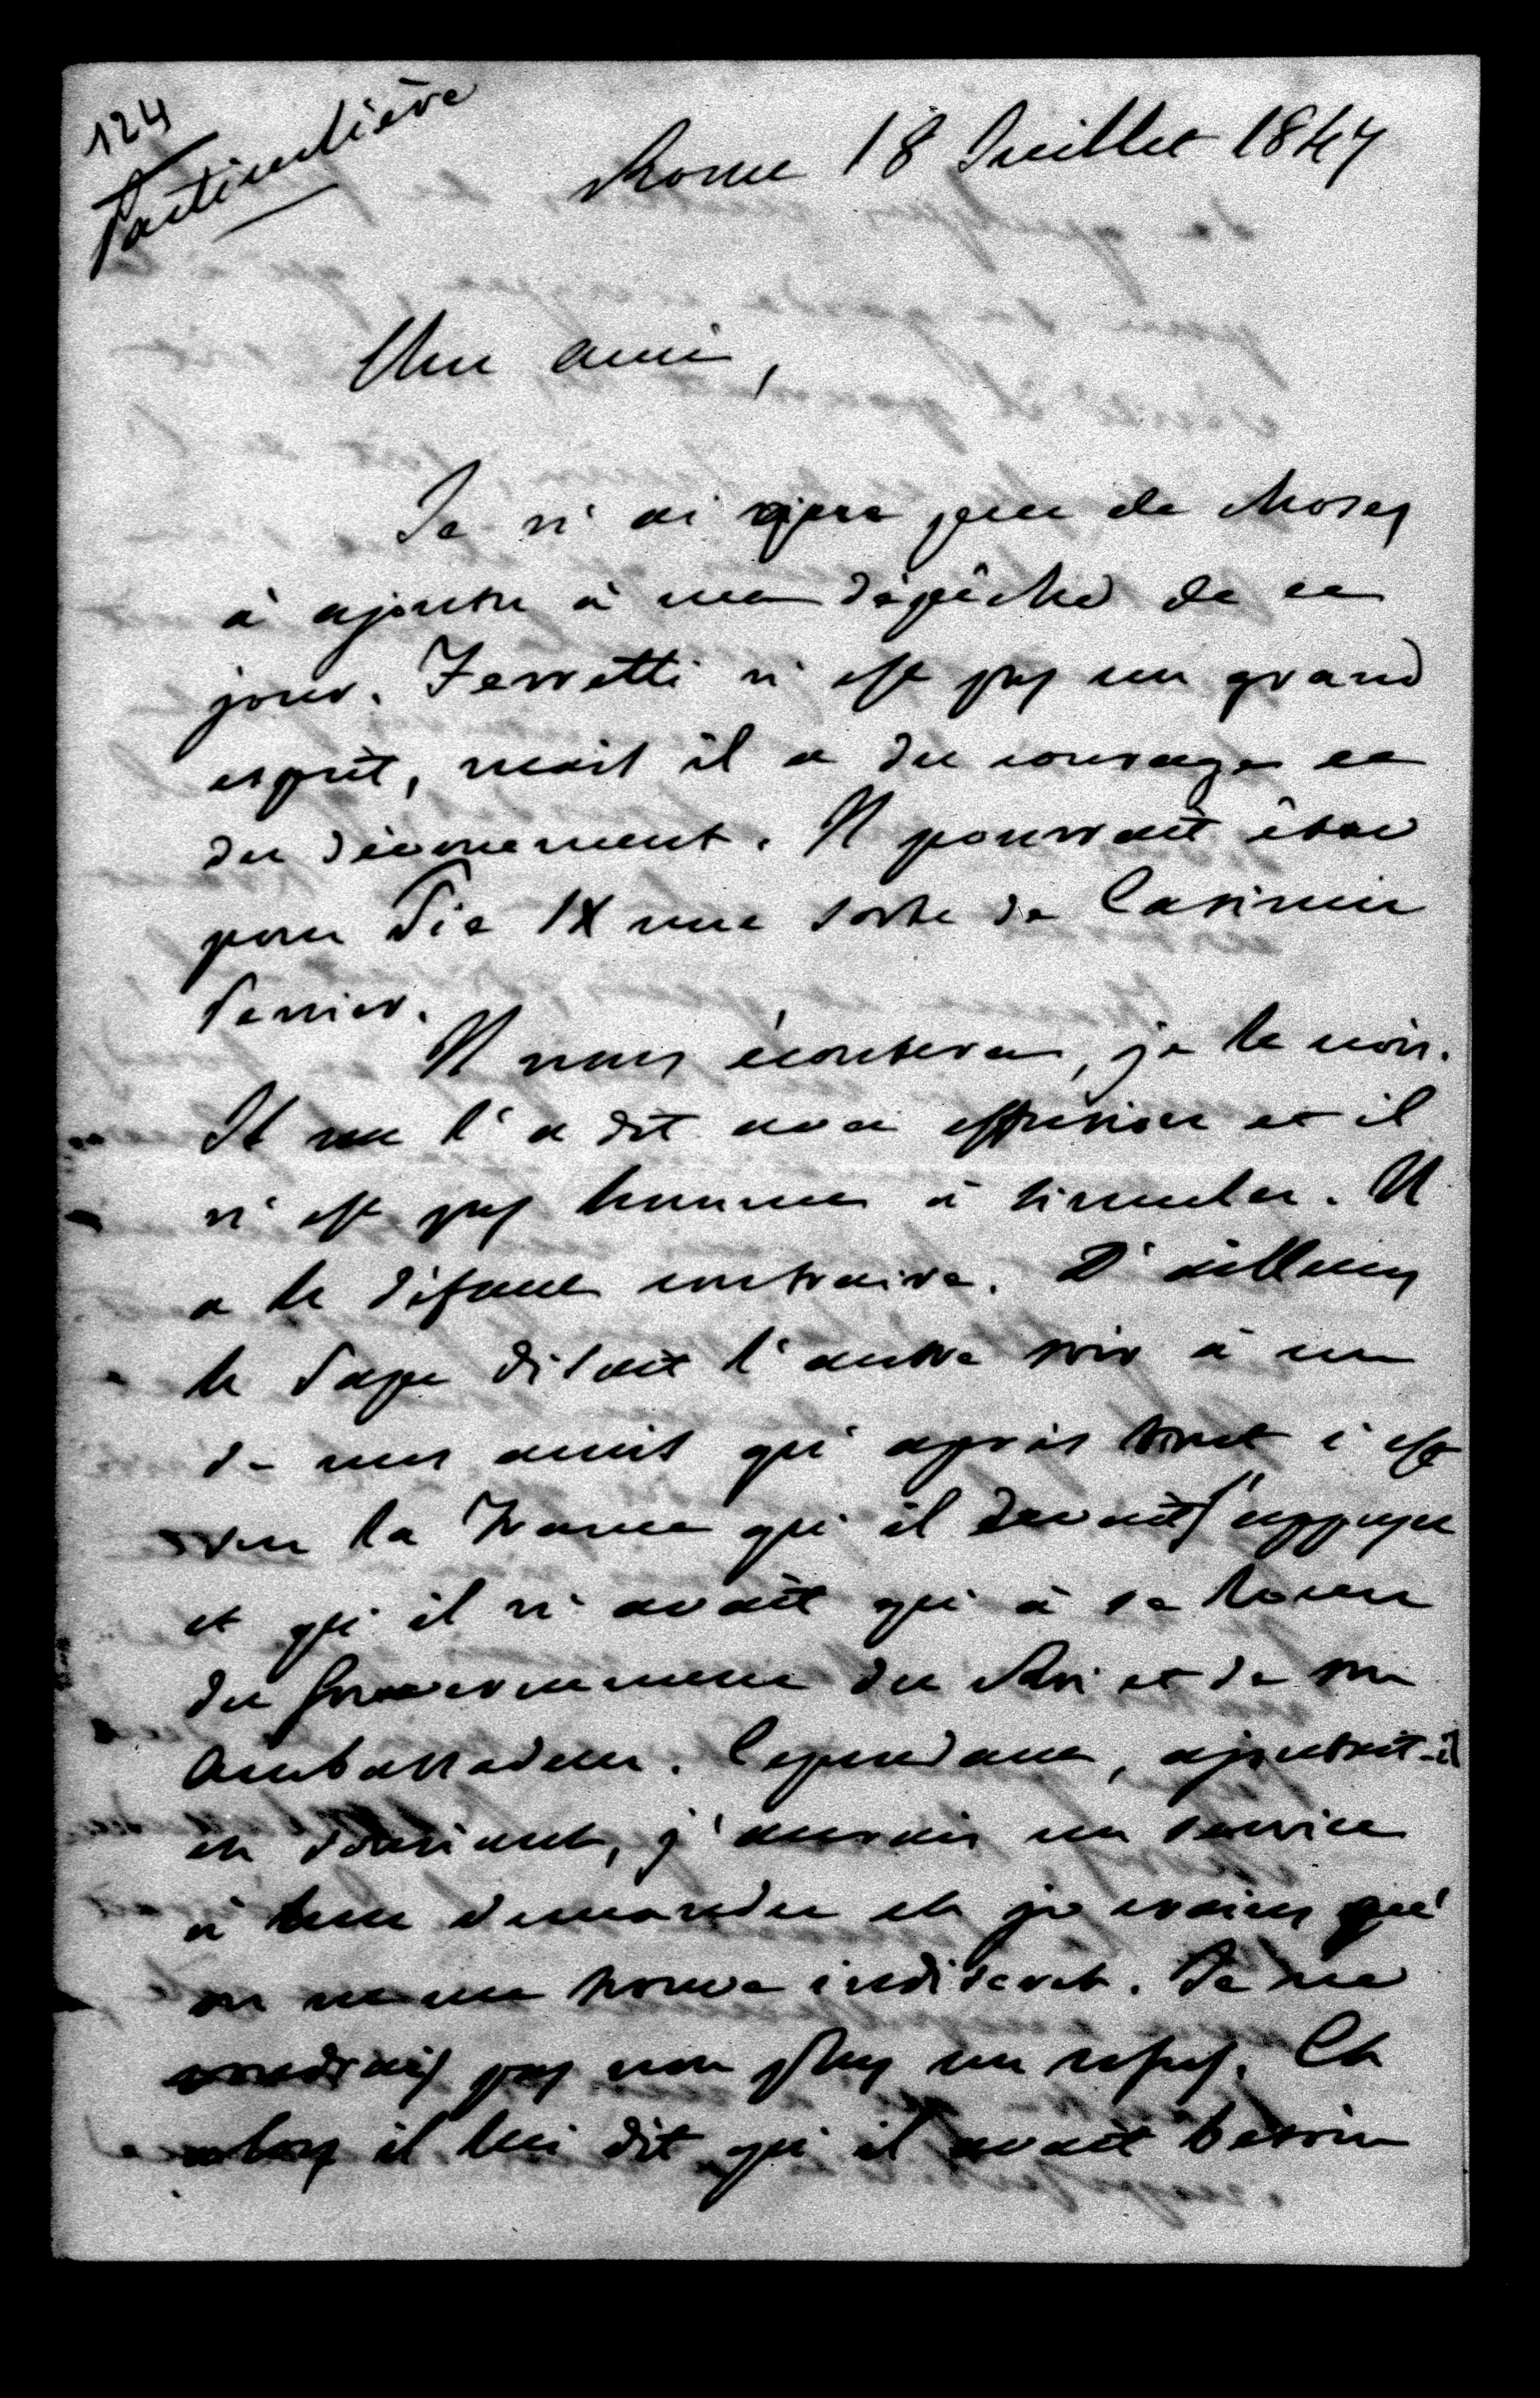 124
Particulière
Rome 18 Juillet 1847
Mon ami,
Je n'ai que peu de choses
à ajouter à ma dépêche de ce
jour. Ferretti n'est pas un grand
esprit, mais il a du courage et
du dévouement. Il pourrait être
pour Pie IX une sorte de Casimir
Perrier.
Il nous écoutera, je le crois.
Il me l'a dit avec effusion et il
n'est pas homme à simuler. Il
a le défaut contraire. D'ailleurs
le Pape disait l'autre soir à un
de nos amis qu'après tout c'est
sur la France qu'il devait s'appuyer
et qu'il n'avait qu'à se louer
du Gouvernement du Roi et de son
Ambassadeur. Cependant, ajoutait-il
en souriant, j'aurais un service
à leur demander et je crains qu'
on ne me trouve indiscret. Je ne
voudrais pas non plus un refus. Et
alors il lui dit qu'il avait besoin